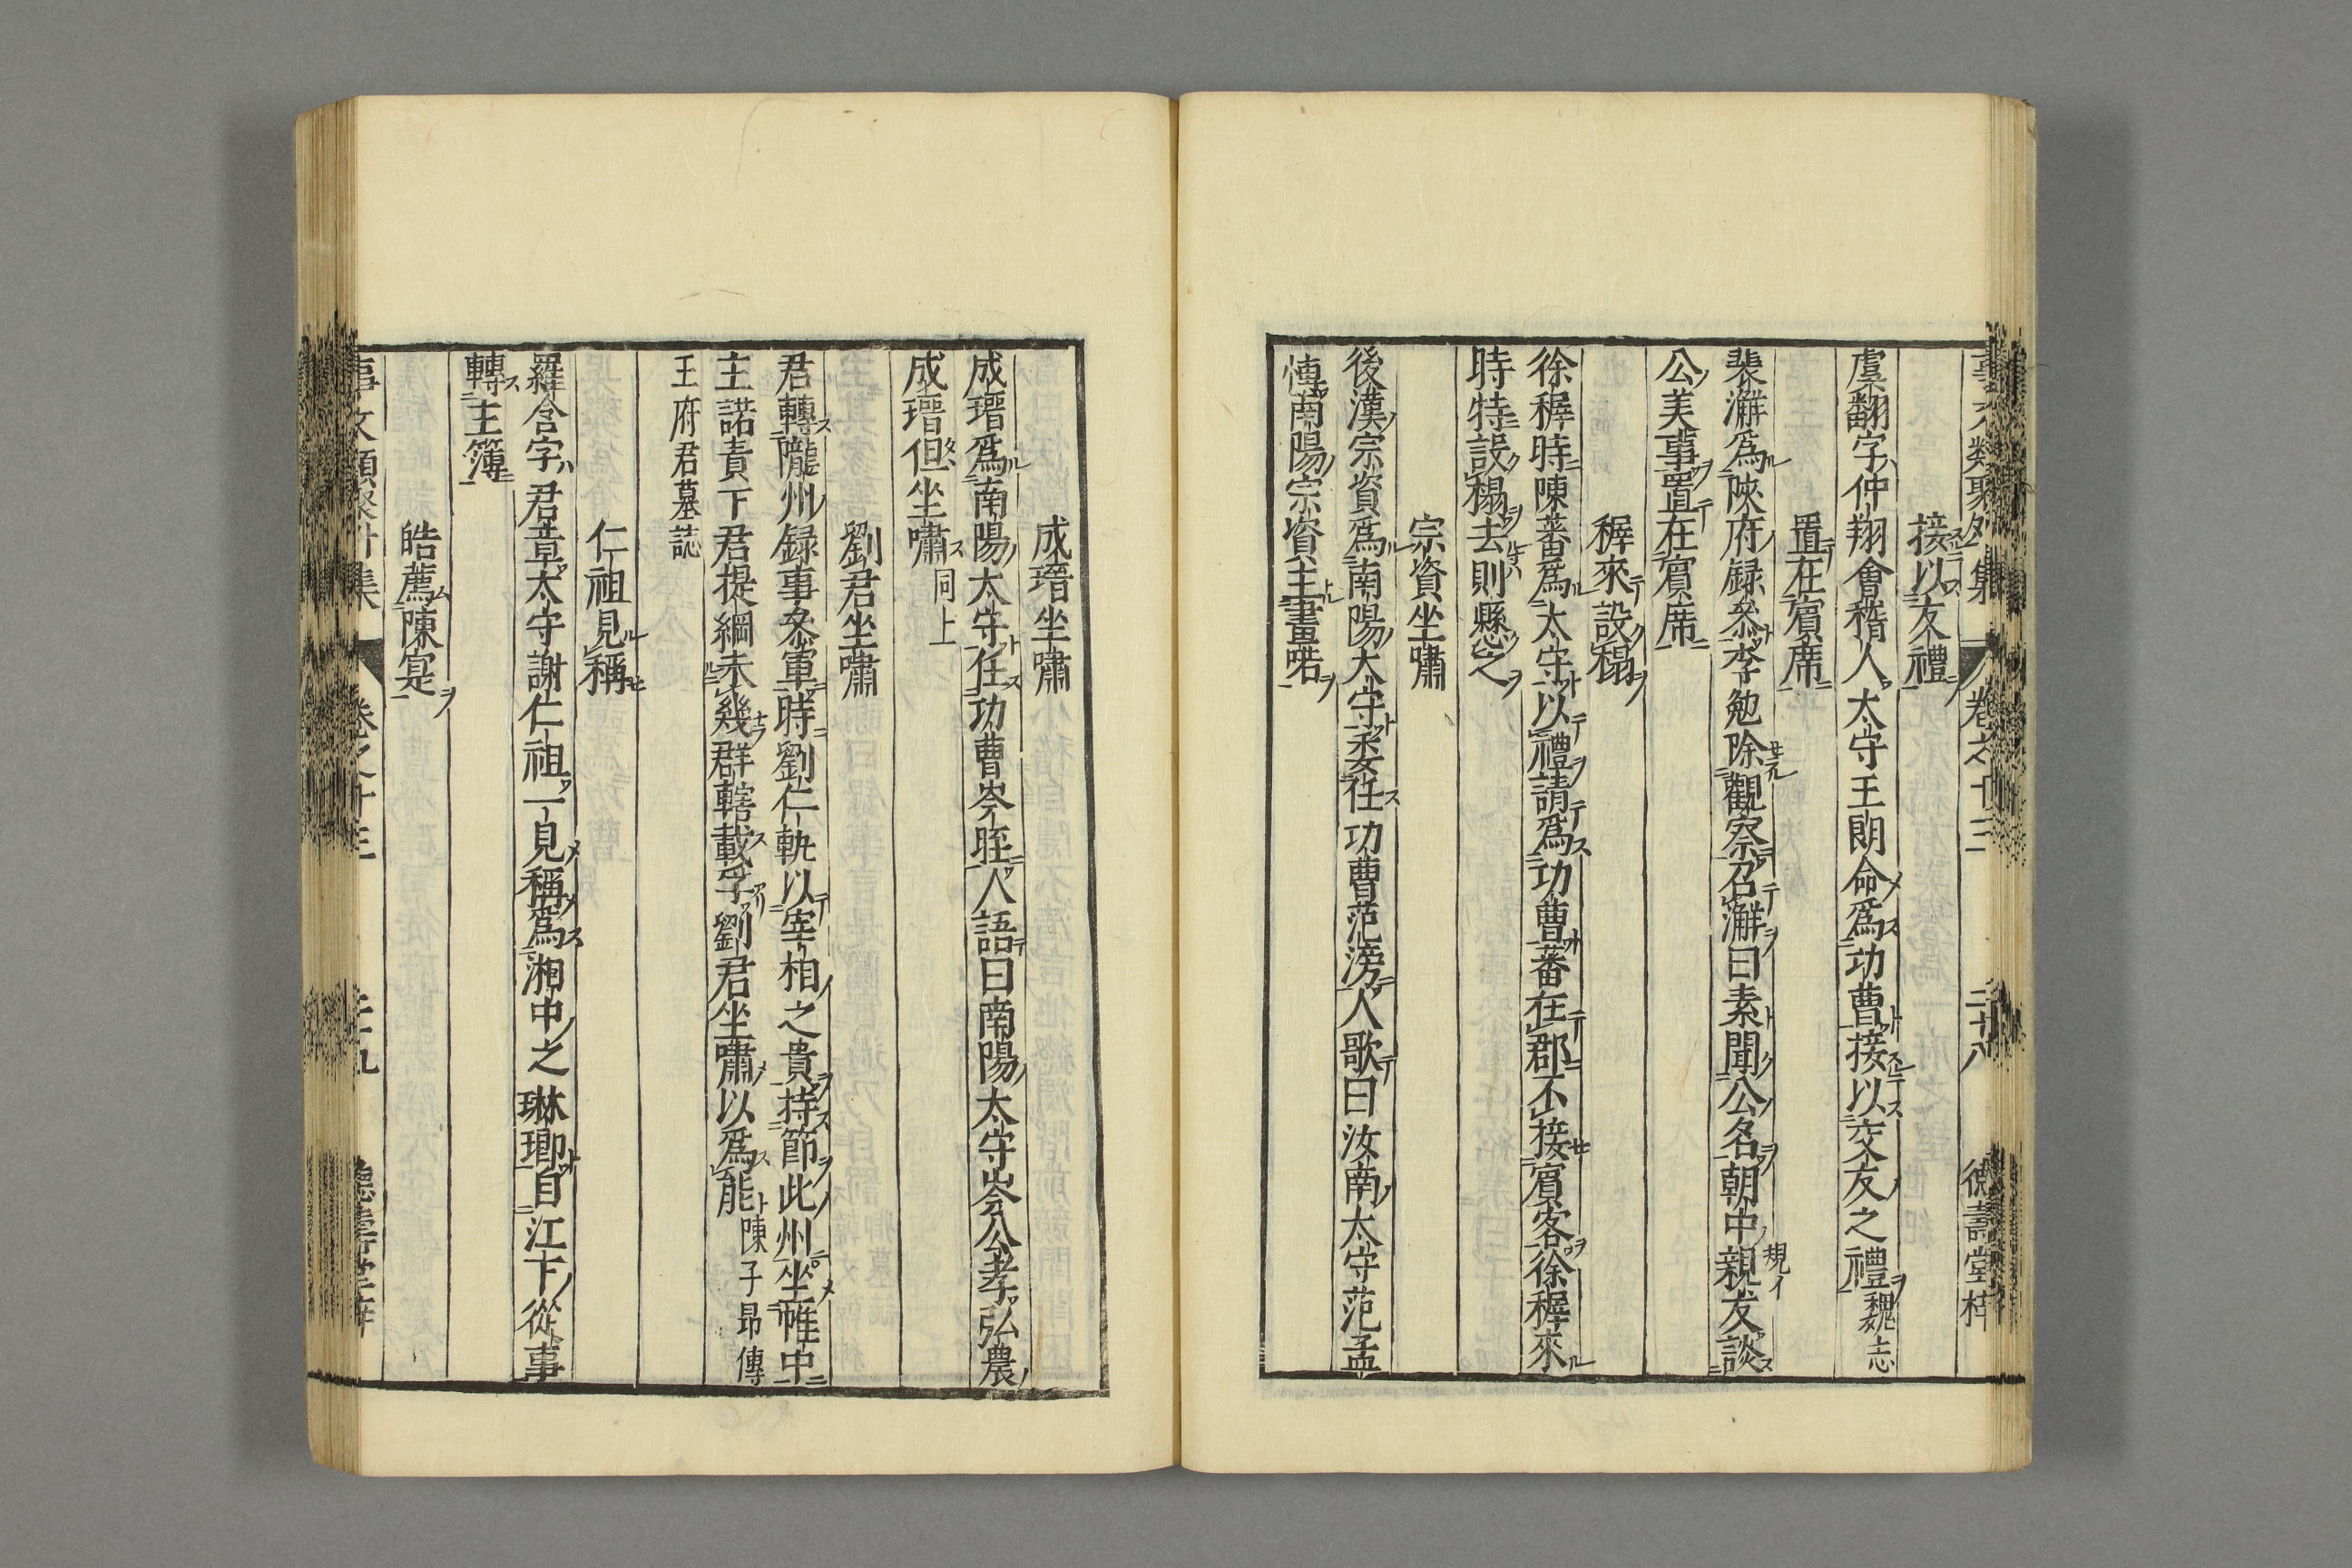 接以友禮
虞翻字仲翔會稽人太守王朗命爲功曹接以交友之禮魏志
置在賓席
裴澥爲陝府録叅李勉除觀察召澥曰素聞公名朝中親友談
規イ
公美事置在賓席
穉來設榻
徐穉時陳蕃爲太守以禮請爲功曹蕃在郡不接賓客徐穉來
時特設榻去則懸之
宗資坐嘯
後漢宗資爲南陽太守委任功曹范滂人歌曰汝南太守范孟
慱南陽宗資主畫喏
事文類聚外集 卷之十三 二十八 德壽堂梓
成瑨坐嘯
成瑨爲南陽太守任功曹岑晊人語曰南陽太守岑公孝弘農
成瑨但坐嘯同上
劉君坐嘯
君轉隴州録事叅軍時劉仁軌以宰相之貴持節此州坐帷中
主諾責下君提綱未幾群轄載孚劉君坐嘯以爲能陳子昂傳
王府君墓誌
仁祖見稱
羅含字君章太守謝仁祖一見稱爲湘中之琳瑯自江下從事
轉主簿
皓薦陳寔
卷之十三